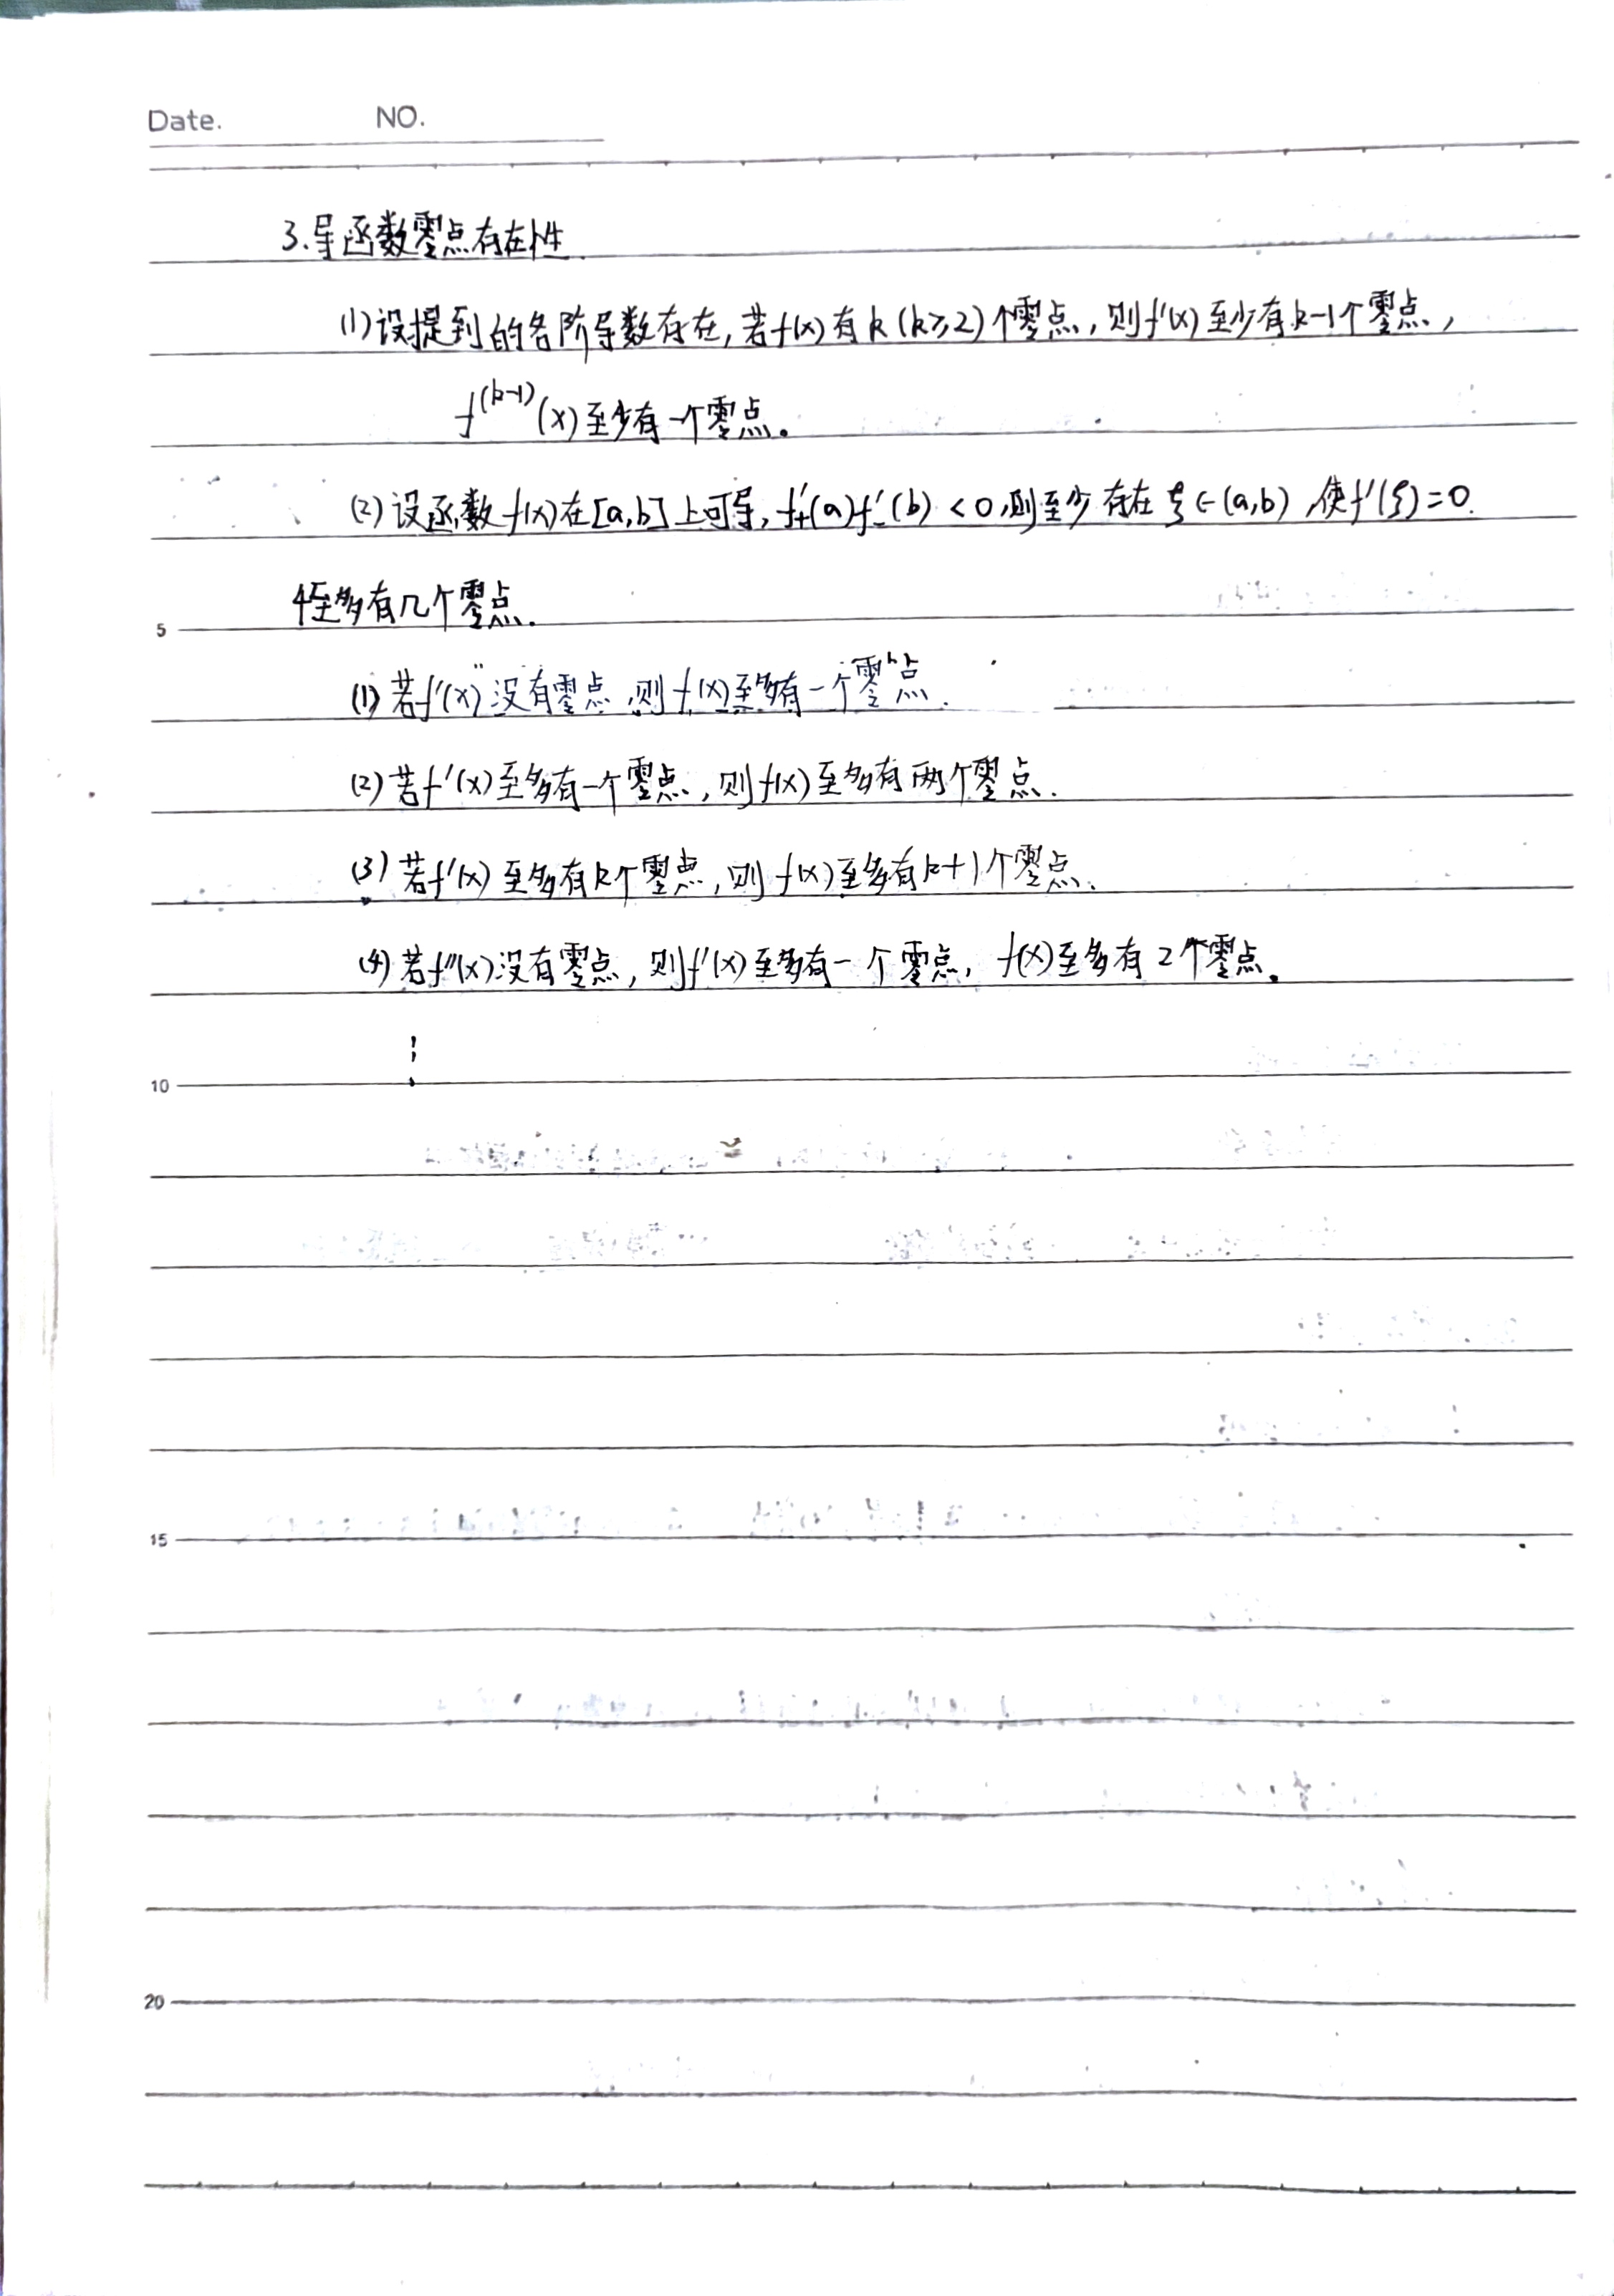 Date. NO.
3.导函数零点存在性.
(1)设提到的各阶导数存在,若f(x)有k(k≥2)个零点,则f'(x)至少有k-1个零点,
f^(k-1)(x)至少有一个零点。
(2)设函数f(x)在[a,b]上可导,f'₊(a)f'₋(b)<0,则至少存在ξ∈(a,b),使f'(ξ)=0.
4至多有几个零点.
5
(1)若f'(x)没有零点,则f(x)至多有一个零点.
(2)若f'(x)至多有一个零点,则f(x)至多有两个零点.
(3)若f'(x)至多有k个零点,则f(x)至多有k+1个零点.
(4)若f''(x)没有零点,则f'(x)至多有一个零点,f(x)至多有2个零点。
10
15
20